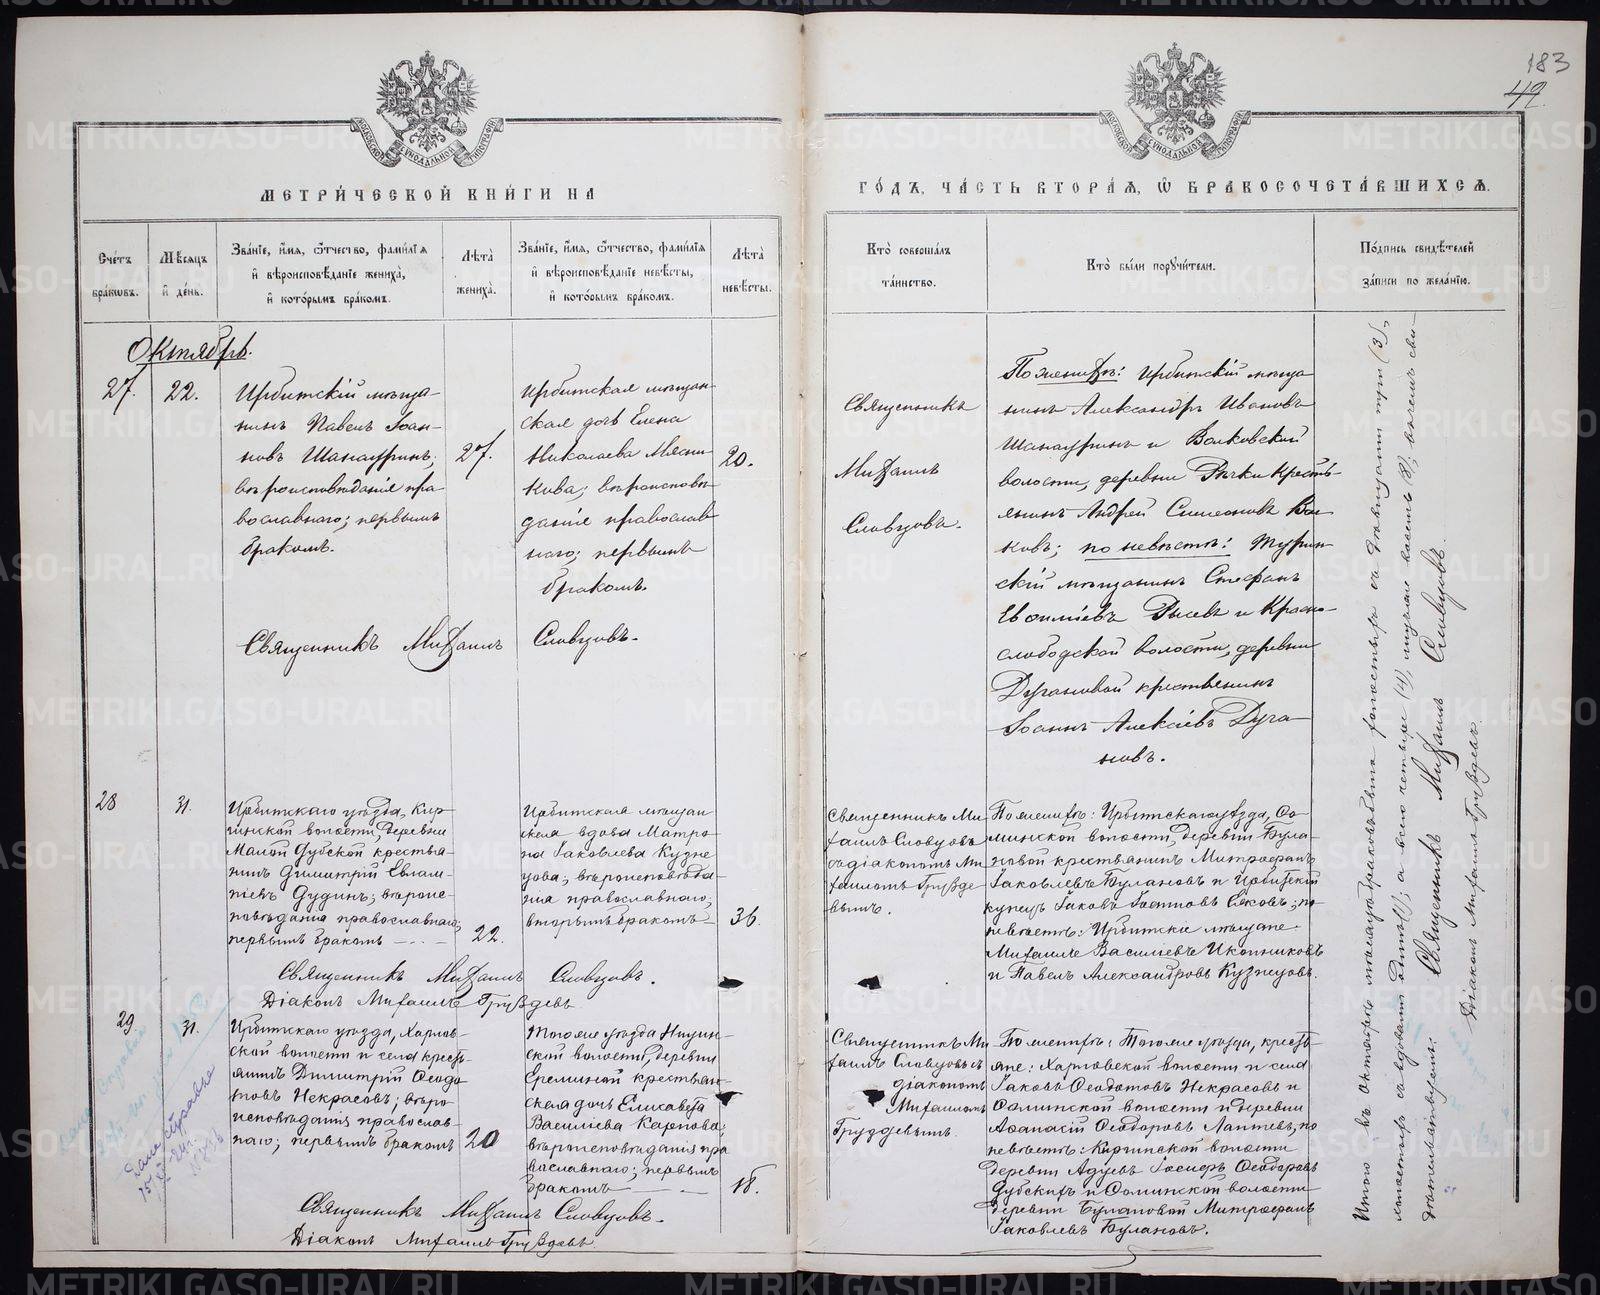 183
49
МЕТРИ́ЧЕСКОЙ КНИ́ГИ НА
ГО́ДЪ, ЧА́СТЬ ВТОРА́Я, Ѿ БРАКОСОЧЕТА́ВШИХСЯ.
Сче́тъ бра́кѡвъ.
Мѣ́сяцъ и́ де́нь.
Зва́нїе, и́мя, ѻ́тчество, фами́лїя
и́ вѣроисповѣ́данїе жениха̀,
и́ кото́рымъ бра́комъ.
Лѣта̀ жениха̀.
Зва́нїе, и́мя, ѻ́тчество, фами́лїя
и́ вѣроисповѣ́данїе невѣ́сты,
и́ кото́рымъ бра́комъ.
Лѣта̀ невѣ́сты.
Кто̀ соверша́лъ
та́инство.
Кто̀ бы́ли порꙋчи́тели.
По́дпись свидѣ́телей
за́писи по жела́нїю.
Октябрь.
27.
22.
Ирбитскій мѣща-
нинъ Павелъ Іоан-
новъ Шанауринъ;
вѣроисповѣданія пра-
вославнаго; первымъ
бракомъ.
27.
Ирбитская мѣщан-
ская дочь Елена
Николаева Мясни-
кова; вѣроисповѣ-
данія православ-
наго; первымъ
бракомъ.
20.
Священникъ
Михаилъ
Словцовъ.
По женихѣ: Ирбитскій мѣща-
нинъ Александръ Ивановъ
Шанауринъ и Волковской
волости, деревни Рѣчки кресть-
янинъ Андрей Симеоновъ Вол-
ковъ; по невѣстѣ: Турин-
скій мѣщанинъ Стефанъ
и Красно-
слободской волости, деревни
Дугановой крестьянинъ
Іоаннъ Алексіевъ Дуга-
новъ.
Священникъ Михаилъ Словцовъ.
28
31.
Ирбитскаго уѣзда, Кир-
гинской волости, деревни
Малой Дубской крестья-
нинъ Димитрій Евлам-
піевъ Дудинъ; вѣроис-
повѣданія православнаго,
первымъ бракомъ
22.
Ирбитская мѣщан-
ская вдова Матро-
на Іаковлева Кузне-
цова; вѣроисповѣда-
нія православнаго,
вторымъ бракомъ
36.
Священникъ Ми-
хаилъ Словцовъ
съ діакономъ Ми-
хаиломъ Груздe-
вымъ.
По женихѣ: Ирбитскаго уѣзда, Со-
минской волости, деревни Була-
новой крестьянинъ Митрофанъ
Іаковлевъ Булановъ и Ирбитскій
купецъ Іаковъ Елковъ; по
невѣстѣ: Ирбитскіе мѣщане
Михаилъ Васильевъ Иконниковъ
и Павелъ Александровъ Кузнецовъ.
Священникъ Михаилъ Словцовъ.
Діаконъ Михаилъ Груздевъ
29
31.
Ирбитскаго уѣзда, Харлов-
ской волости и села кресть-
янинъ Димитрій Ѳеодо-
товъ Некрасовъ; вѣро-
исповѣданія православ-
наго; первымъ бракомъ
20
Того же уѣзда Ницин-
ской волости, деревни
Ереминой крестьян-
ская дочь Елисавета
Василіева Карпова;
вѣроисповѣданія пра-
вославнаго; первымъ
бракомъ
18.
Священникъ Ми-
хаилъ Словцовъ съ
діакономъ
Михаиломъ
Груздевымъ.
По женихѣ: Того же уѣзда, кресть-
яне: Харловской волости и села
Іаковъ Ѳеодотовъ Некрасовъ и
Сминской волости и деревни
Аѳанасій Ѳеодоровъ Лаптевъ, по
невѣстѣ: Киргинской волости
деревни Адуевъ Іосифъ Ѳеодоровъ
Дубскихъ и Соминской волости
деревни Булановой Митрофанъ
Іаковлевъ Булановъ.
Священникъ Михаилъ Словцовъ.
Діаконъ Михаилъ Груздевъ.
Итого въ октябрѣ мѣсяцѣ браковъ три (3),
Священникъ Михаилъ Словцовъ.
Діаконъ Михаилъ Груздевъ.
METRIKI.GASO-URAL.RU